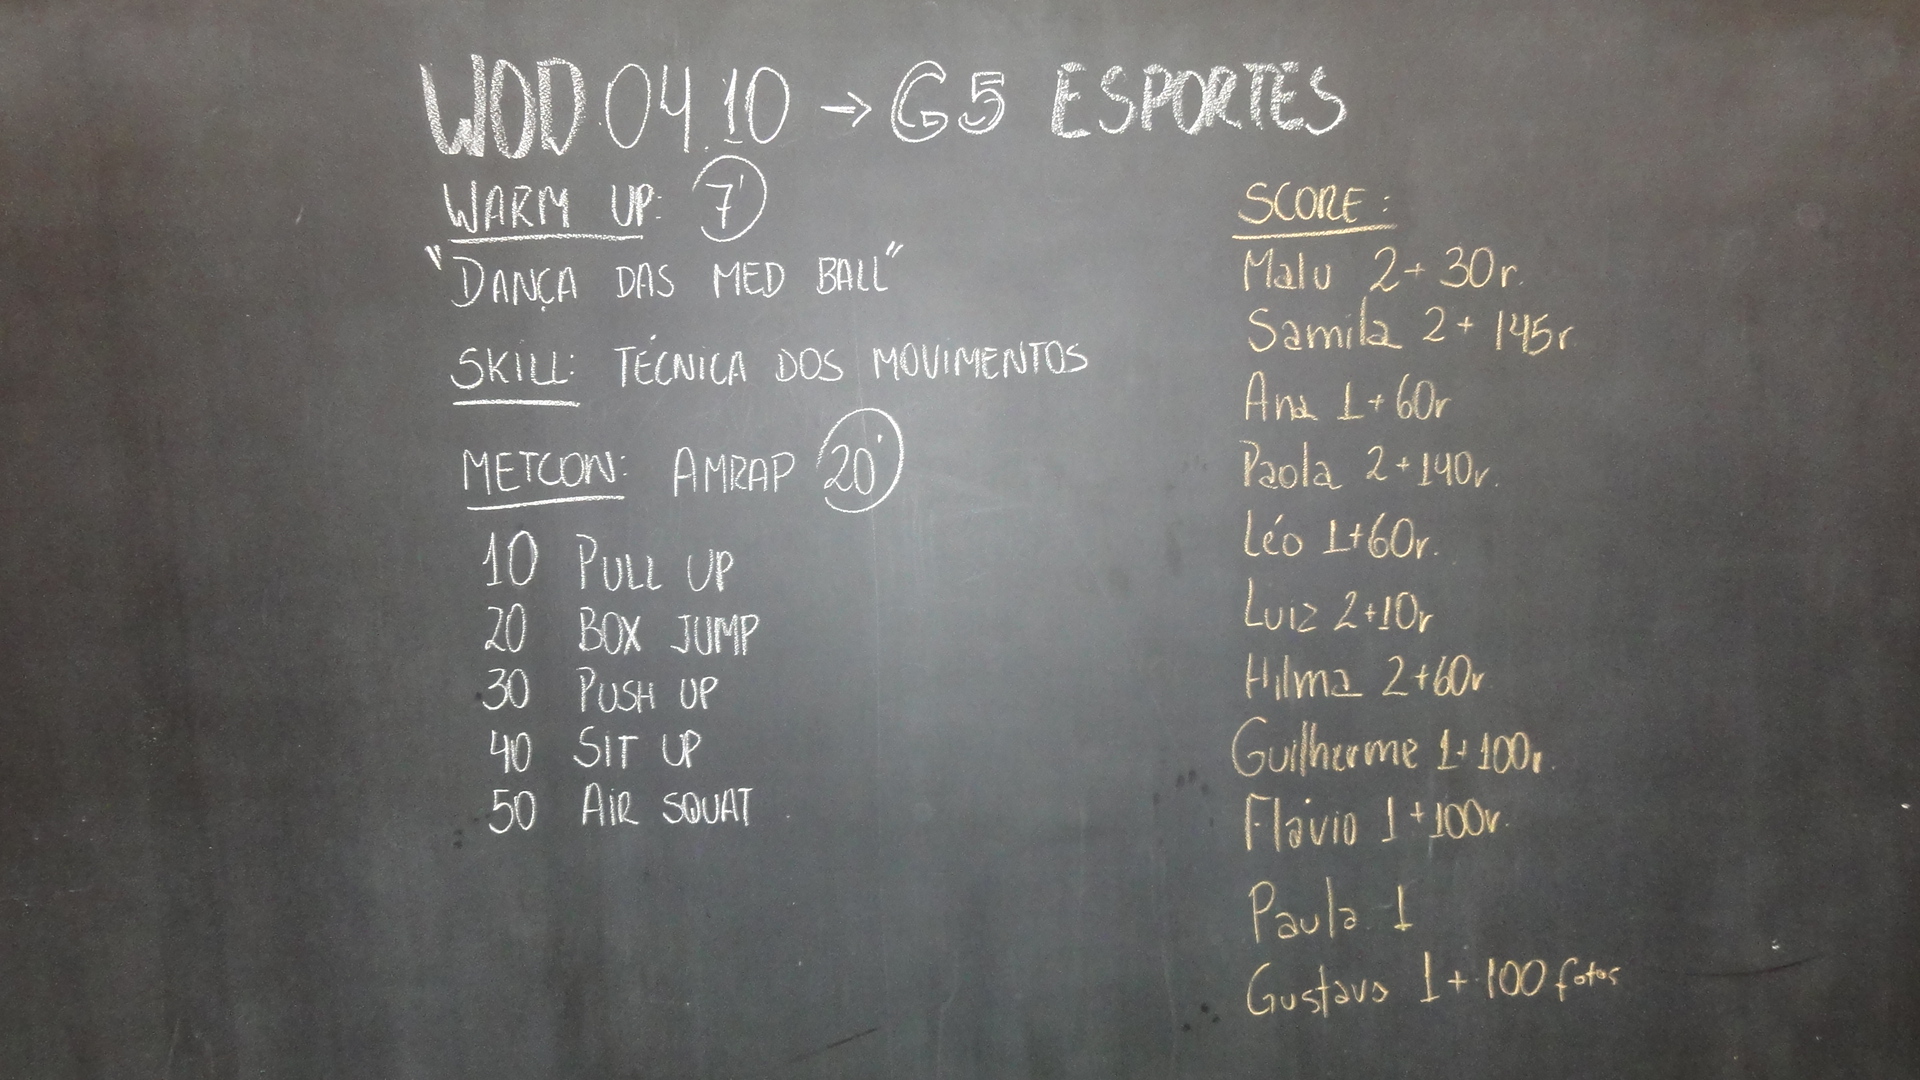 WOD 04.10 → G5 ESPORTES
WARM UP: 7'
"DANÇA DAS MED BALL"
SKILL: TÉCNICA DOS MOVIMENTOS
METCON: AMRAP 20'
10 PULL UP
20 BOX JUMP
30 PUSH UP
40 SIT UP
50 AIR SQUAT
SCORE:
Malu 2+30r.
Samila 2+145r
Ana 1+60r
Paola 2+140r.
Léo 1+60r.
Luiz 2+10r
Hilma 2+60r
Guilherme 1+100r.
Flávio 1+100r.
Paula 1
Gustavo 1+100 fotos